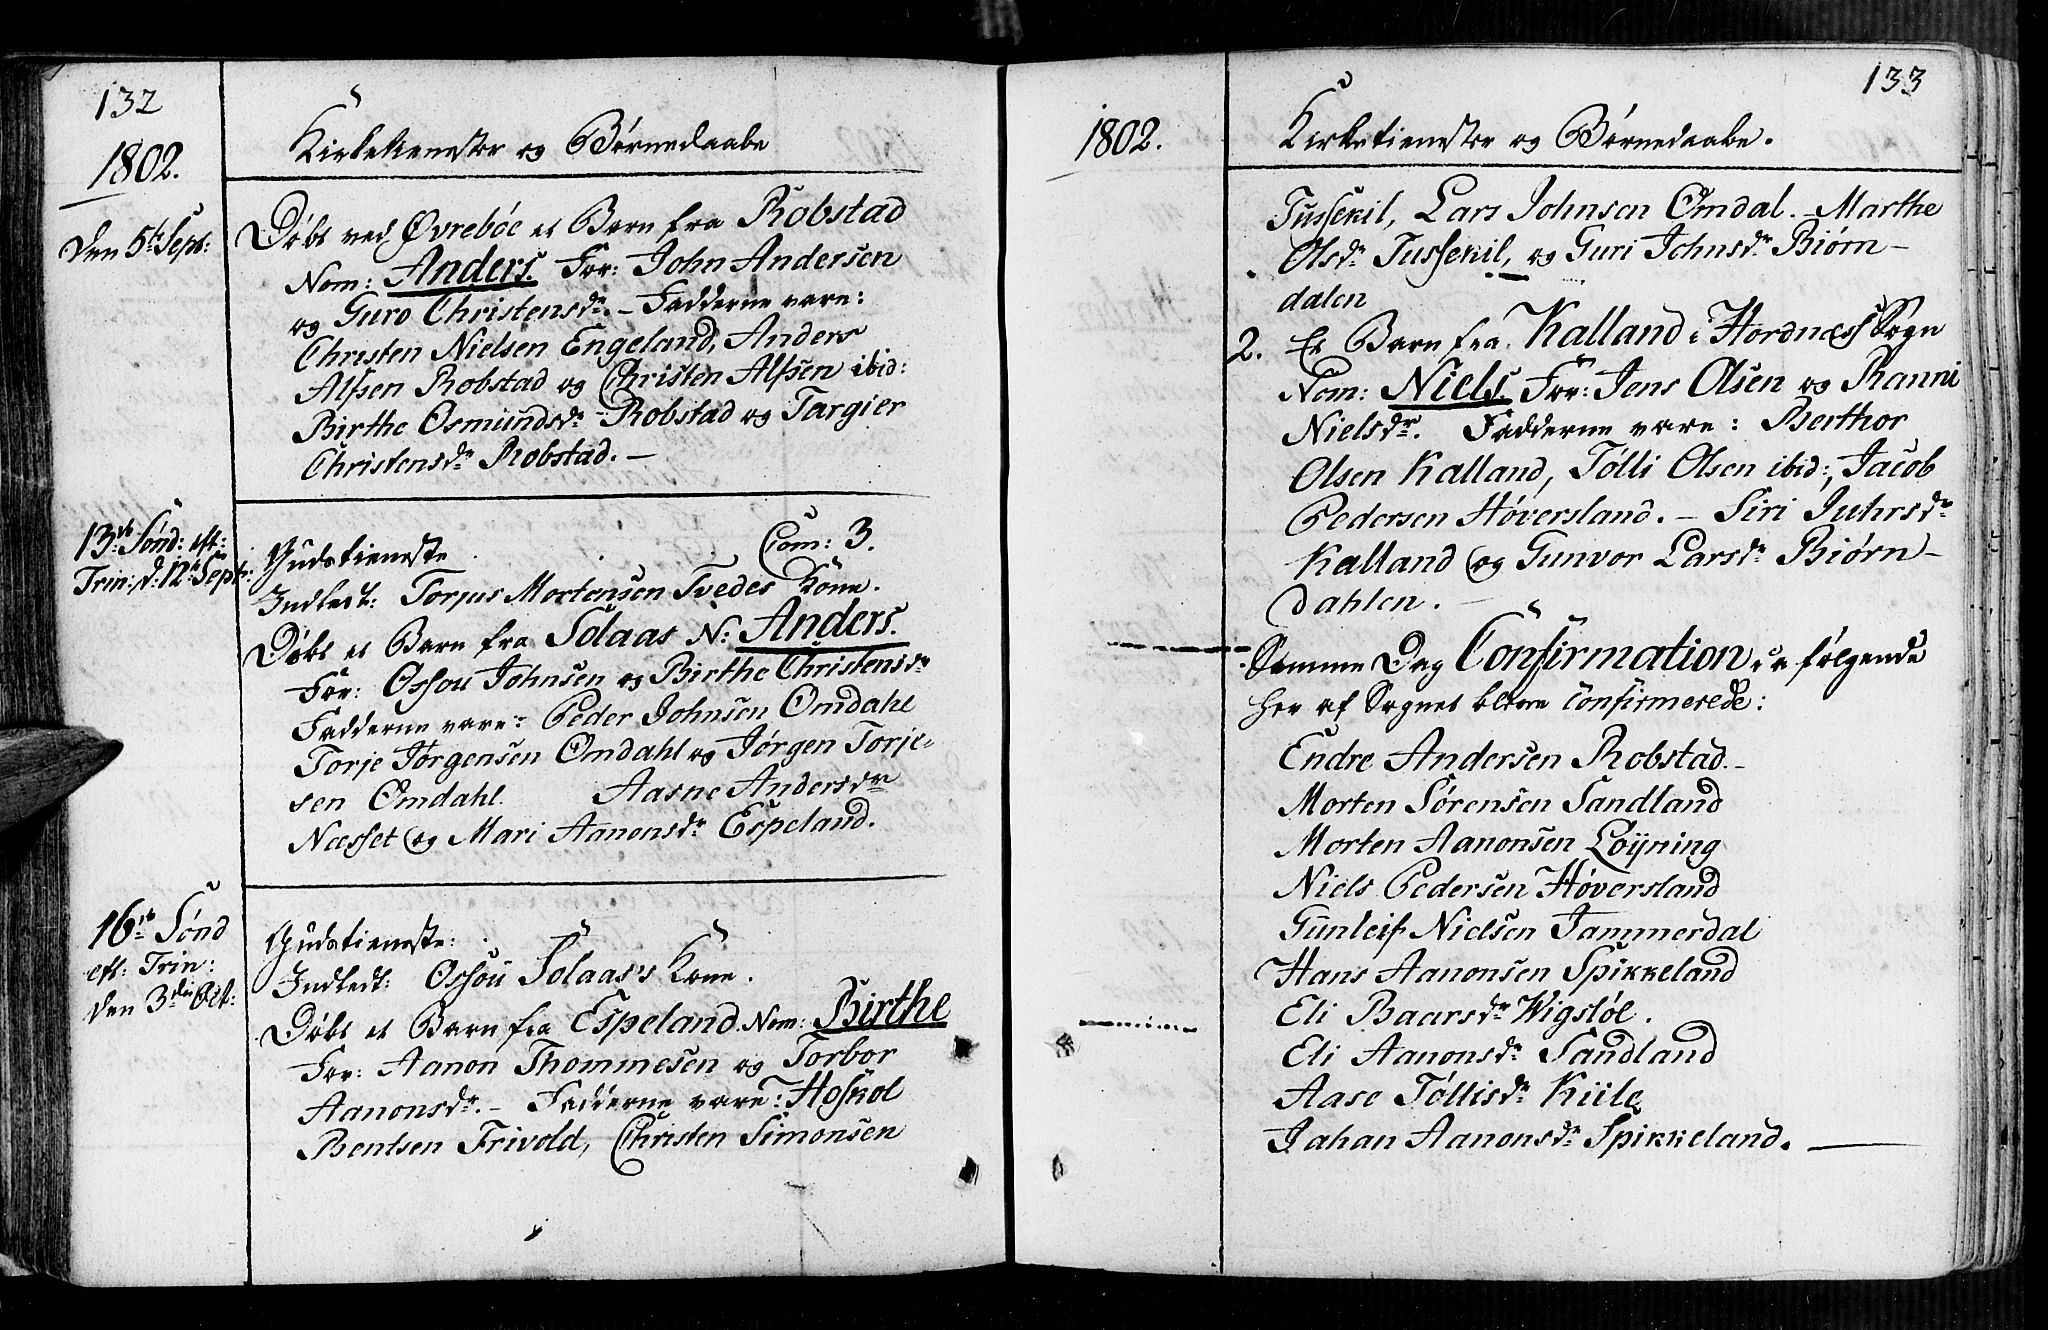 132
1802.
Kirketienester og Børnedaabe
den 5te Sept:
Døbt ved Øvrebøe et Barn fra Robstad
Nom: Anders. For: John Andersen
og Guro Christensdr. – Fadderne vare:
Christen Nielsen Engeland, Anders
Alfsen Robstad og Christen Alfsen ibid:
Birthe Osmundsdr Robstad og Targier
Christensdr Robstad. –
13de Sønd: eft:
Trin: d: 12te Sept:
Gudstieneste Com: 3.
Indledt: Torjus Mortensen Tvedes Kone.
Døbt et Barn fra Solaas N: Anders.
For: Ossou Johnsen og Birthe Christensdr
Fadderne vare: Peder Johnsen Omdahl
Torje Jørgensen Omdahl og Jørgen Torje-
sen Omdahl. Aasne Andersdr
Næsset og Mari Aanonsdr Espeland.
16de Sønd
eft: Trin:
den 3die Oct:
Gudstieneste:
Indledt: Ossou Solaas's Kone.
Døbt et Barn fra Espeland. Nom: Birthe
For: Aanon Thommesen og Torbor
Aanonsdr. – Fadderne vare: Hoskol
Bentsen Frivold, Christen Simonsen
133
1802.
Kirketienester og Børnedaabe.
Tussekil, Lars Johnsen Omdal. – Marthe
Olsdr Tussekil, og Guri Johnsdr Biørn-
dalen
2. Et Barn fra Kalland i Hordnæss Sogn
Nom: Niels. For: Jens Olsen og Ranni
Nielsdr. Fadderne vare: Berthor
Olsen Kalland, Tølli Olsen ibid:, Jacob
Pedersen Høversland. – Siri Juhrsdr
Kalland og Gunvor Larsdr Biørn-
dahlen.
Samme Dag Confirmation, da følgende
her af Sognet bleve Confirmerede:
Endre Andersen Robstad. –
Morten Sørensen Sandland
Morten Aanonsen Løyning
Niels Pedersen Høversland
Gunleif Nielsen Jammerdal
Hans Aanonsen Spikkeland
Eli Baarsdr Wigsløe.
Eli Aanonsdr Sandland
Aase Tøllisdr Kiile
Jahan Aanonsdr Spikkeland. –